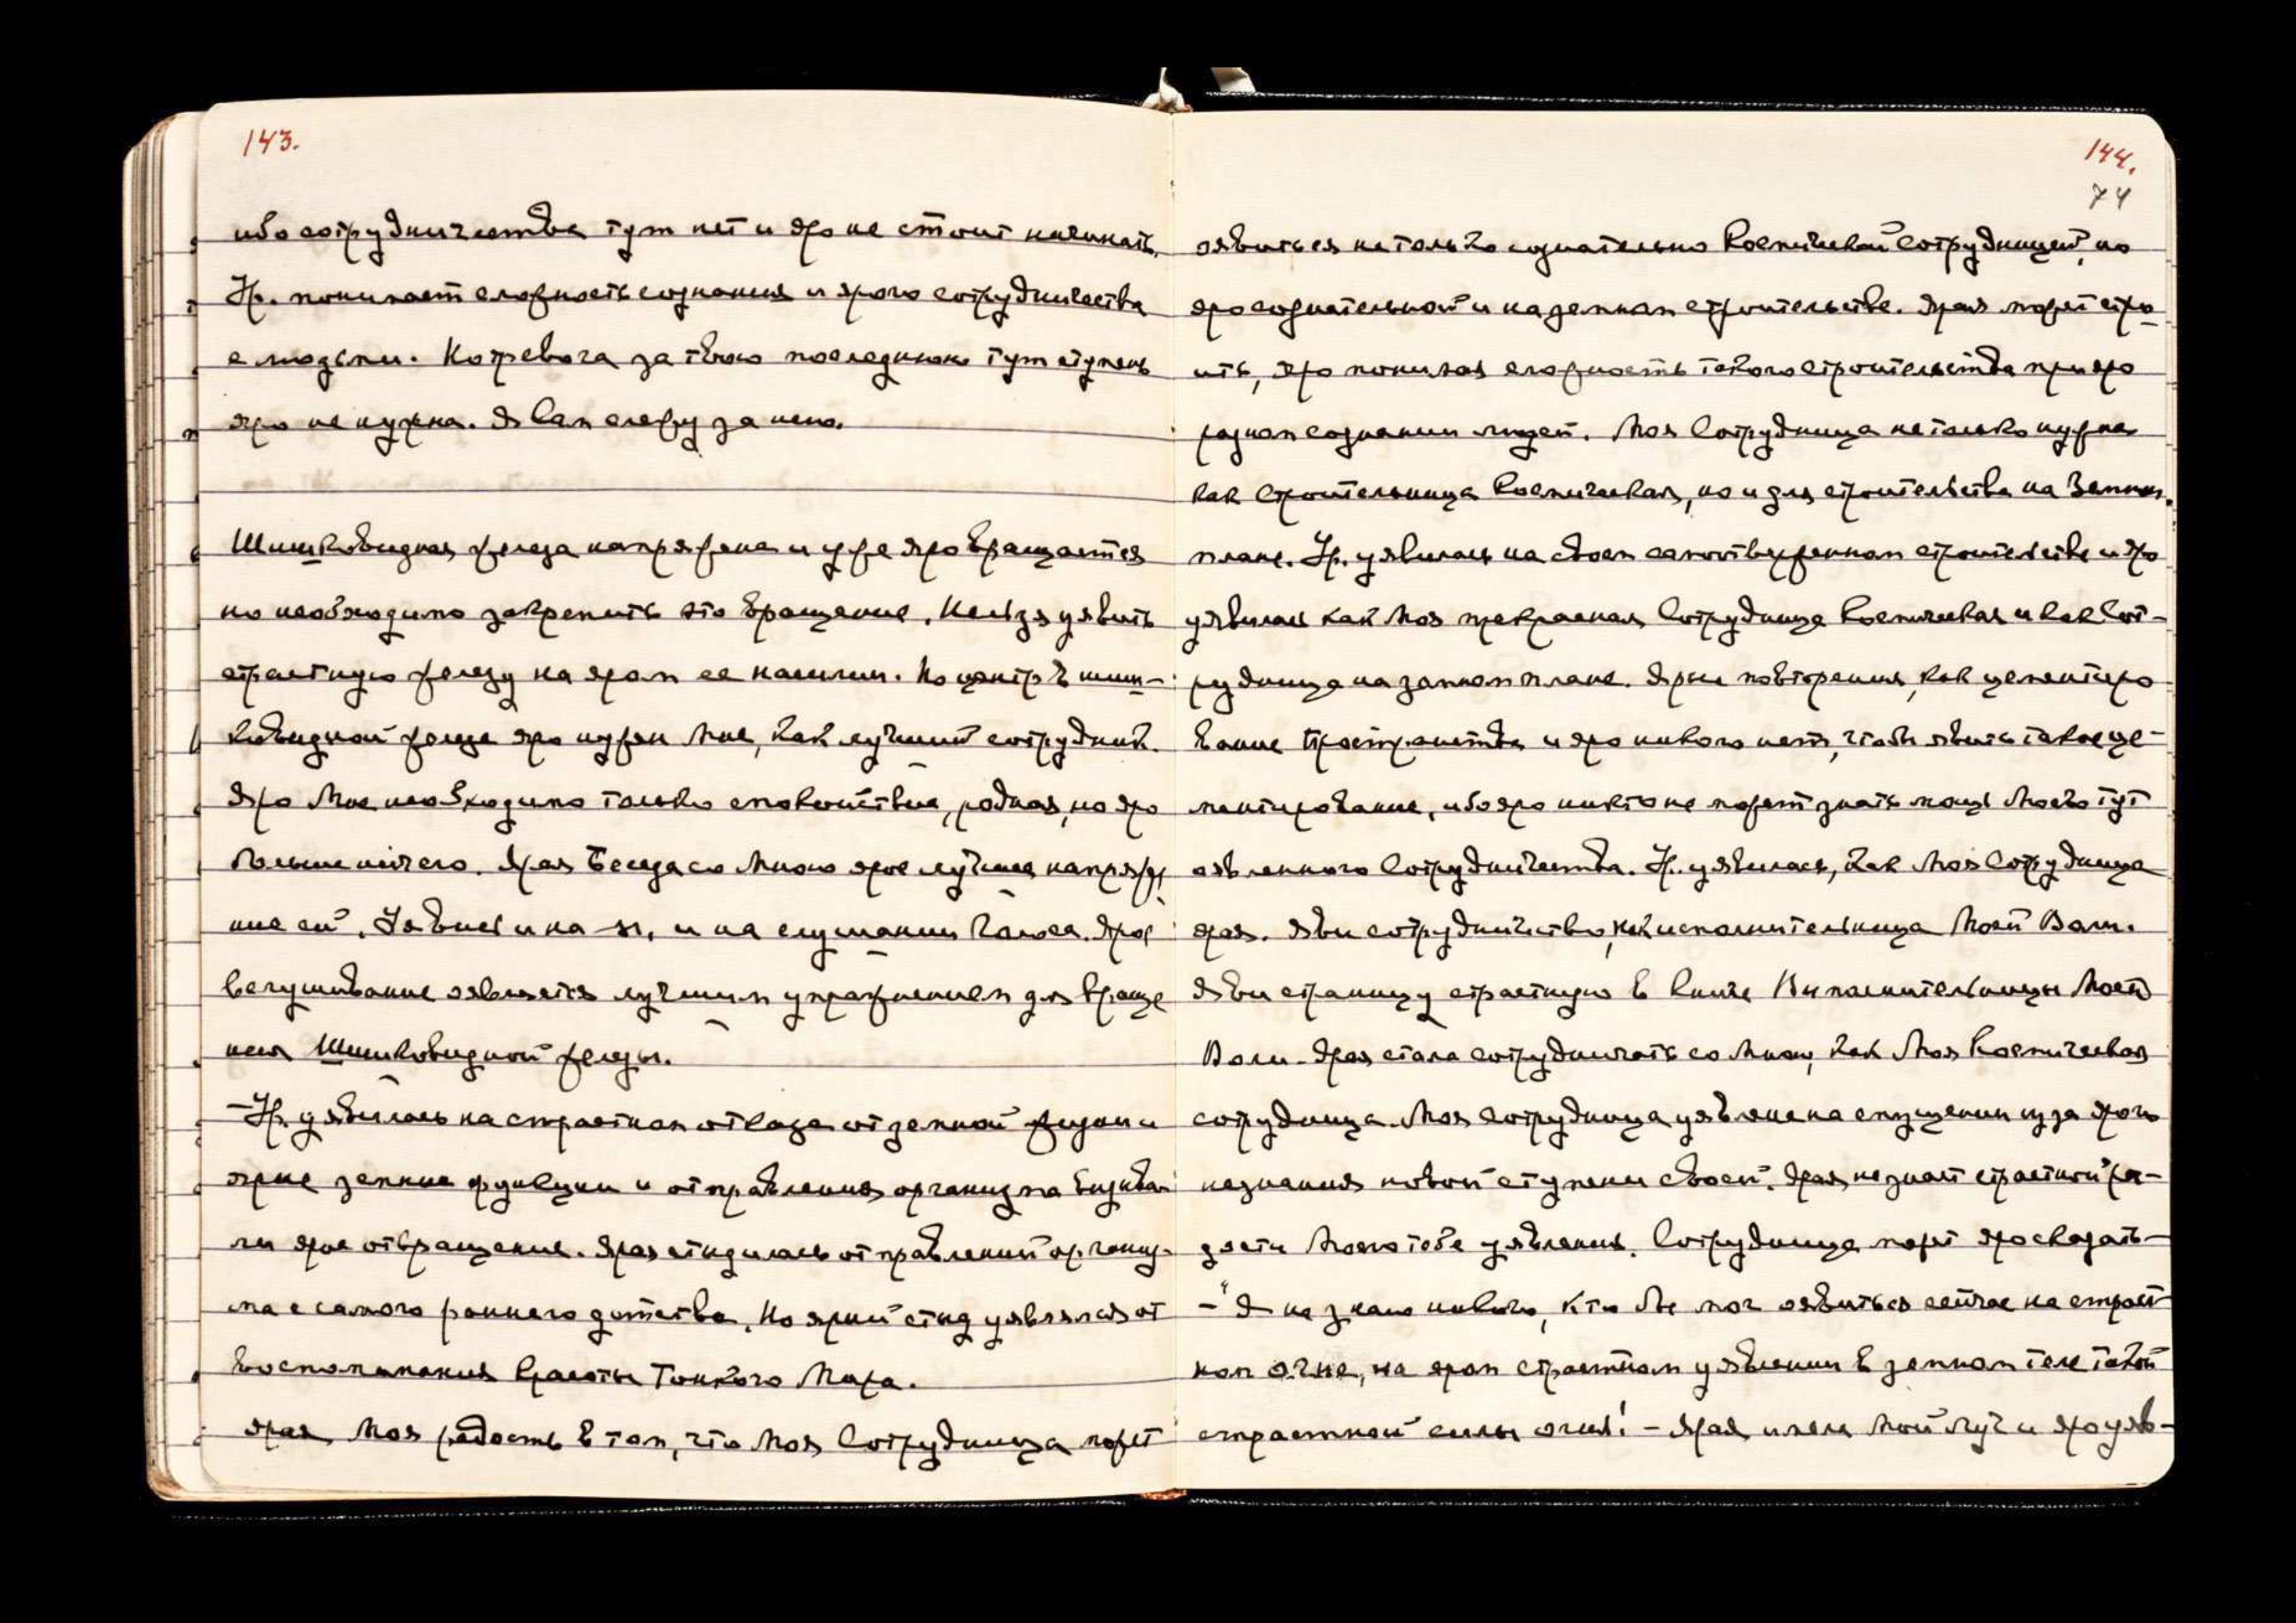 143.
ибо сотрудничества тут нет и яро не стоит начинать.
Ур. понимает сложность сознания и ярого сотрудничества
с людьми. Но тревога за твою последнюю тут ступень
яро не нужна. Я Сам слежу за нею.
Шишковидная железа напряжена и уже яро вращается
но необходимо закрепить это вращение. Нельзя уявить
страстную железу на яром ее насилии. Но центр в шиш-
ковидной железе яро нужен Мне, как лучший сотрудник.
Яро Мне необходимо только спокойствие, родная, но яро
больше ничего. Ярая Беседа со Мною ярое лучшее напряже
ние ей. Уявись и на       и на слушании Голоса. Ярое
вслушивание оявляется лучшим упражнением для враще
ния Шишковидной железы.
– Ур. уявилась на страстном отказе от земной жизни и
ярые земные функции и отправления организма вызыва-
ли ярое отвращение. Ярая стыдилась отправлений организ-
ма с самого раннего детства. Но ярый стыд уявлялся от
воспоминания Красоты Тонкого Мира.
Ярая Моя радость в том, что Моя Сотрудница может
144.
74
оявиться не только сознательно Космической Сотрудницей, но
яро сознательной и на земном строительстве. Ярая может стро
ить, яро понимая сложность такого строительства при яро
разном сознании людей. Моя Сотрудница не только нужна
как Строительница Космическая, но и для строительства на Земном
плане. Ур. уявилась на своем самоотверженном строительстве и яро
уявилась как Моя прекрасная Сотрудница Космическая и как Сот-
рудница на земном плане. Ярые повторения, как цементиро
вание Пространства и яро никого нет, чтобы явить такое це-
ментирование, ибо яро никто не может знать мощь Моего тут
оявленного Сотрудничества. Ур. уявилась, как Моя Сотрудница
ярая. Яви сотрудничество, как исполнительница Моей Воли.
Яви страницу страстную в Книге Исполнительницы Моей
Воли. Ярая стала сотрудничать со Мною, как Моя Космическая
сотрудница. Моя Сотрудница уявлена на смущении из за ярого
незнания новой ступени своей. Ярая не знает страстной ра-
дости Моего тебе уявления. Сотрудница может яро сказать –
– "Я не знаю никого, кто бы мог оявиться сейчас на страст
ном огне, на яром страстном уявлении в земном теле такой
страстной силы огня! – Ярая имела Мой Луч и яро уяв-